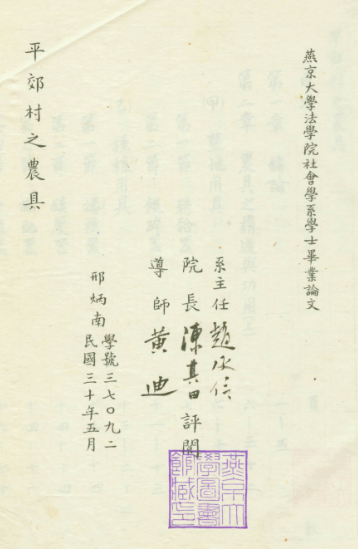 燕京大學法學院社會學系學士畢業論文
系主任 趙承信
院長 陳其田 評閱
導師 黃迪
平郊村之農具
邢炳南 學號三七〇九二
民國三十年五月
燕京大
學圖書
館藏之